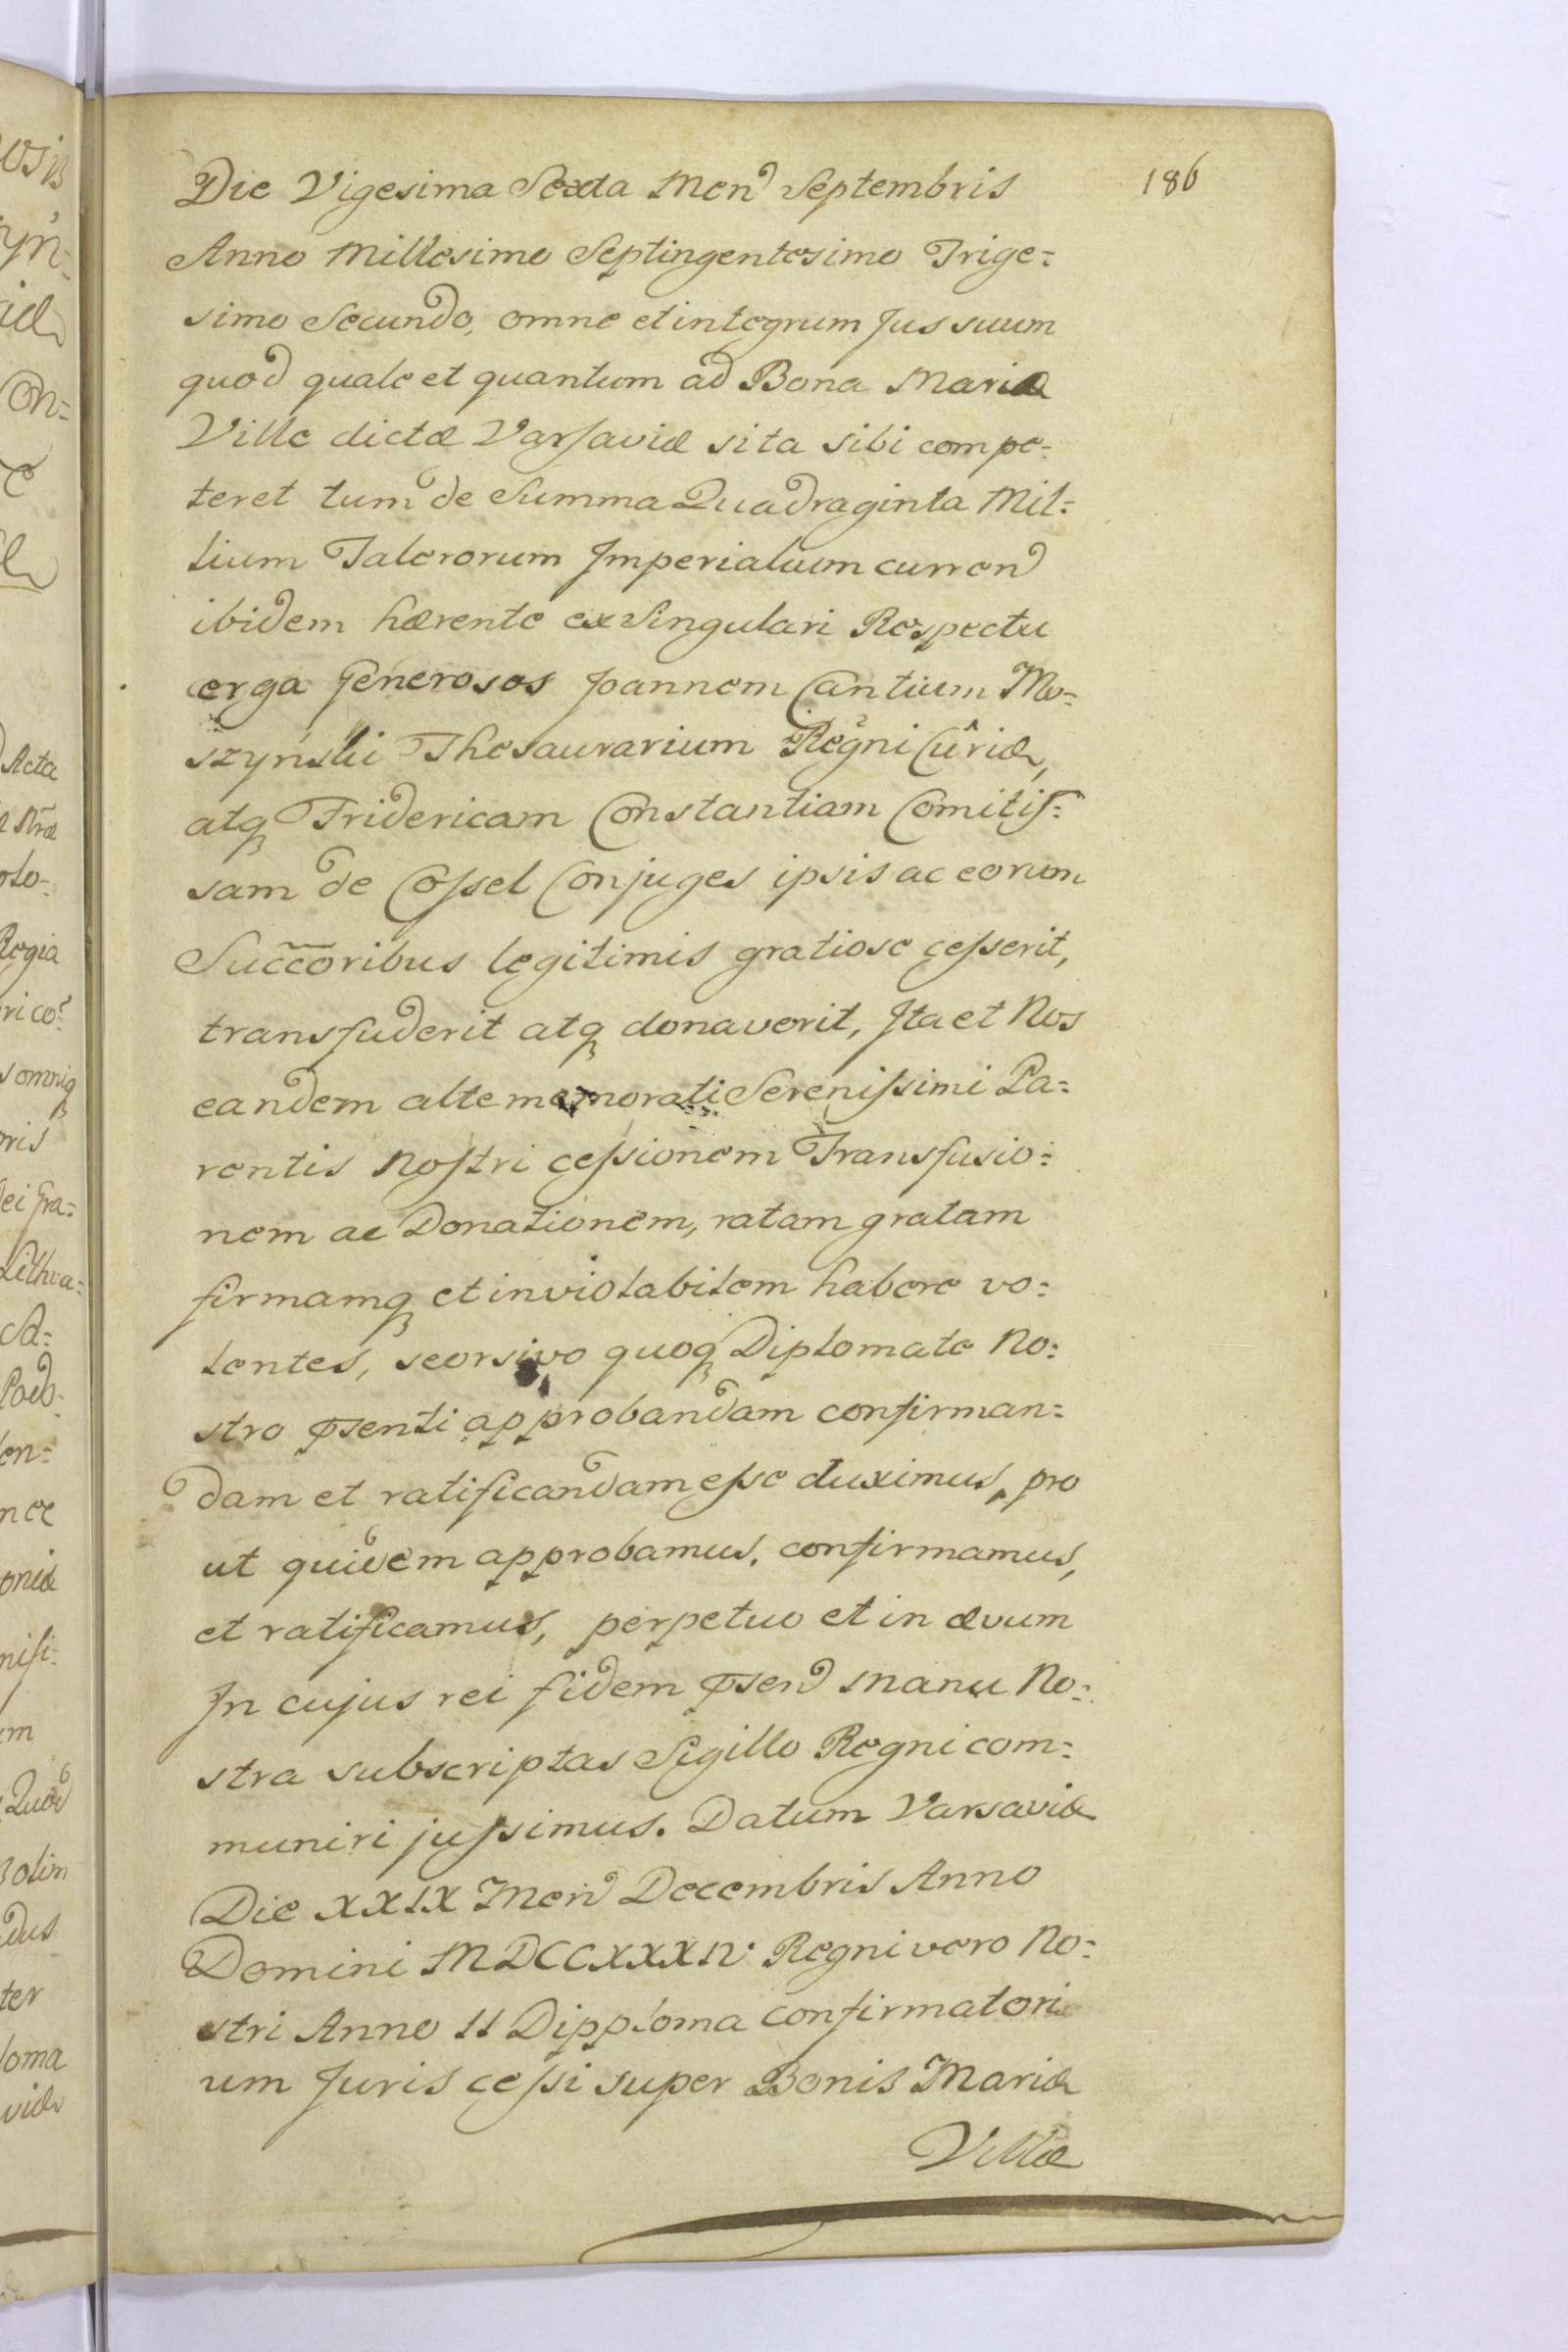 186
Die Vigesima Sexta Men Septembris
Anno Millesimo Septingentesimo Trige=
simo Secundo, omne et integrum Jus suum
quod quale et quantum ad Bona Mariæ
Ville dictæ Varſaviæ sita sibi compe=
teret tum de Summa Quadraginta Mil=
lium Talerorum Imperialium curren
ibidem hærente ex Singulari Respectu
erga Generosos Joannem Cantium Mo=
szynski Thesaurarium Regni Curiæ,
atq Fridericam Constantiam Comitiſ=
sam de Coſsel Conjuges ipsis ac eorum
Succoribus legitimis gratiose ceſserit,
transfuderit atq donaverit, Ita et Nos
eandem alte memorati Sereniſsimi Pa=
rentis Noſtri ceſsionem Transfusio=
nem ac Donationem, ratam gratam
firmamq et inviolabilem habere vo=
lentes, seorsivo quoq Diplomate No=
stro p̄senti approbandam confirman=
dam et ratificandam eſse duximus, pro
ut quidem approbamus, confirmamus,
et ratificamus, perpetuo et in ævum
In cujus rei fidem p̄sen manu No=
stra subscriptas Sigillo Regni com=
muniri juſsimus. Datum Varsaviæ
Die XXIX Men Decembris Anno
Domini MDCCXXXIV. Regni vero No=
stri Anno II Dipploma Confirmatori
um Juris ceſsi super Bonis Mariæ
Villæ